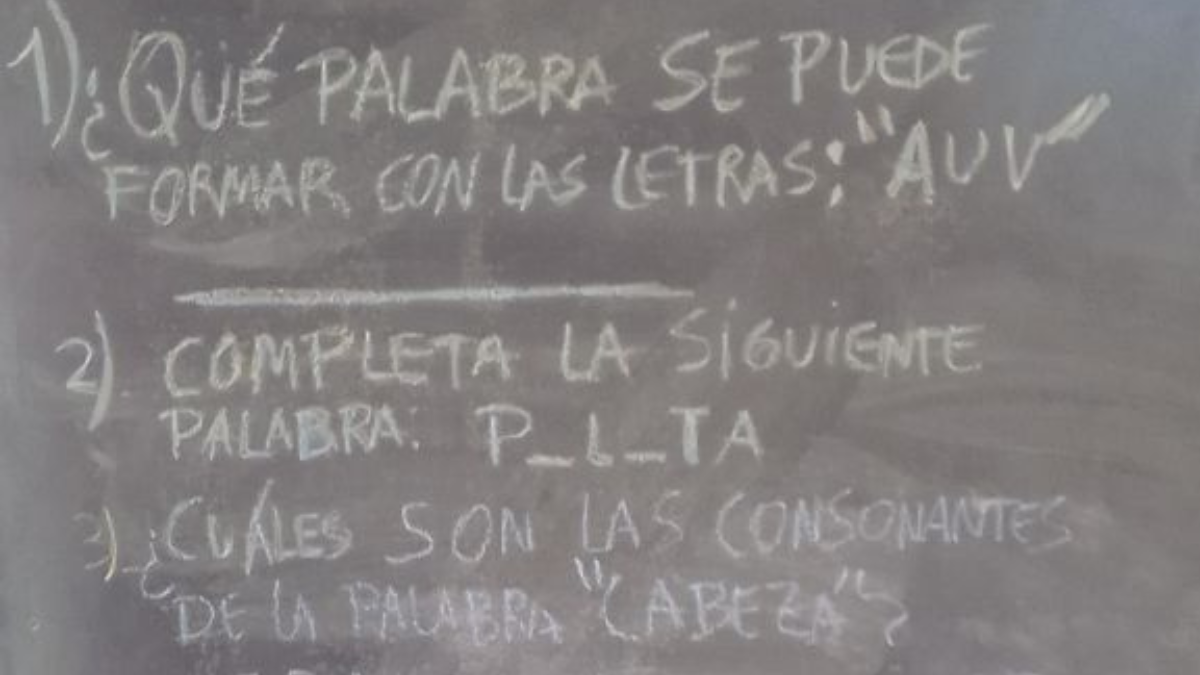 1) ¿QUÉ PALABRA SE PUEDE
FORMAR CON LAS LETRAS: "AUV"
2) COMPLETA LA SIGUIENTE
PALABRA: P_L_TA
3) ¿CUÁLES SON LAS CONSONANTES
DE LA PALABRA "CABEZA"?